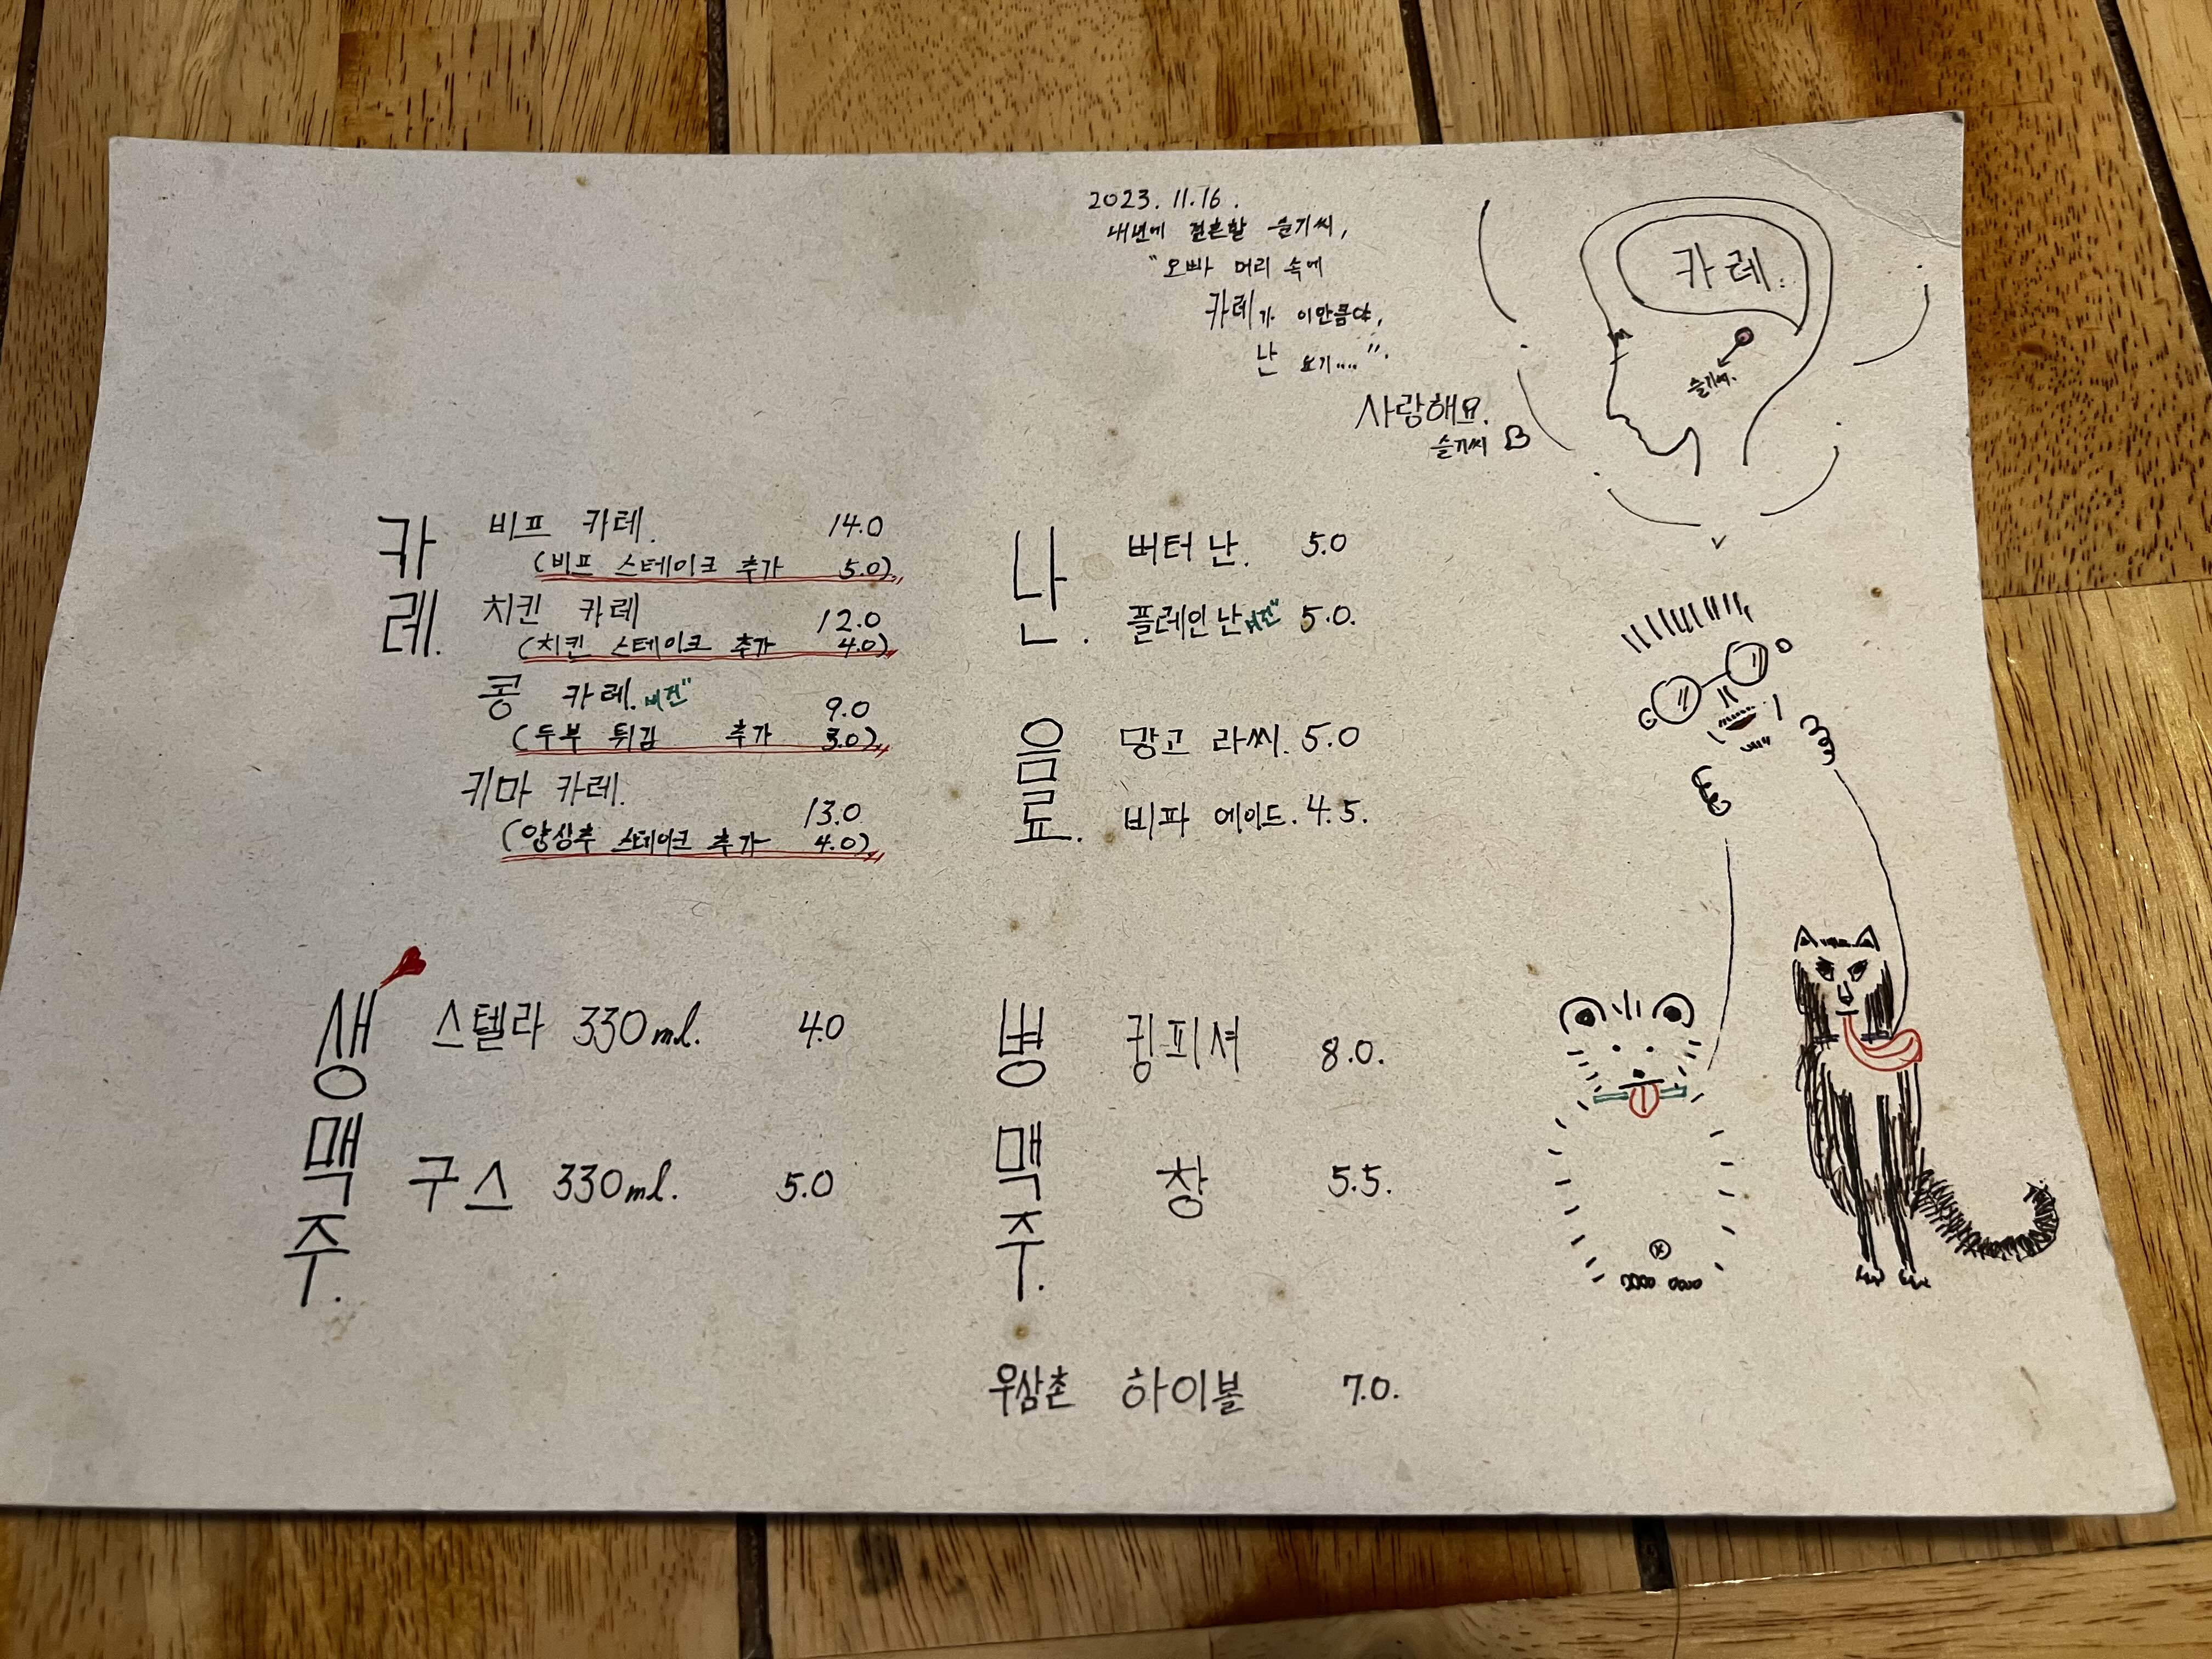 2023. 11.16.
내년에 결혼할 슬기씨,
"오빠 머리 속에
카레가 이만큼야,
난 요기....".
사랑해요.
슬기씨
카레.
슬기씨.
카레.
비프 카레. 14.0
(비프 스테이크 추가 5.0)
치킨 카레 12.0
(치킨 스테이크 추가 4.0)
콩 카레. 비건" 9.0
(두부 튀김 추가 3.0)
키마 카레. 13.0
(양상추 스테이크 추가 4.0)
난.
버터 난. 5.0
플레인 난 비건" 5.0.
음료.
망고 라씨. 5.0
비파 에이드. 4.5.
생맥주.
스텔라 330ml. 4.0
구스 330ml. 5.0
병맥주.
킹피셔 8.0.
창 5.5.
우삼촌 하이볼 7.0.